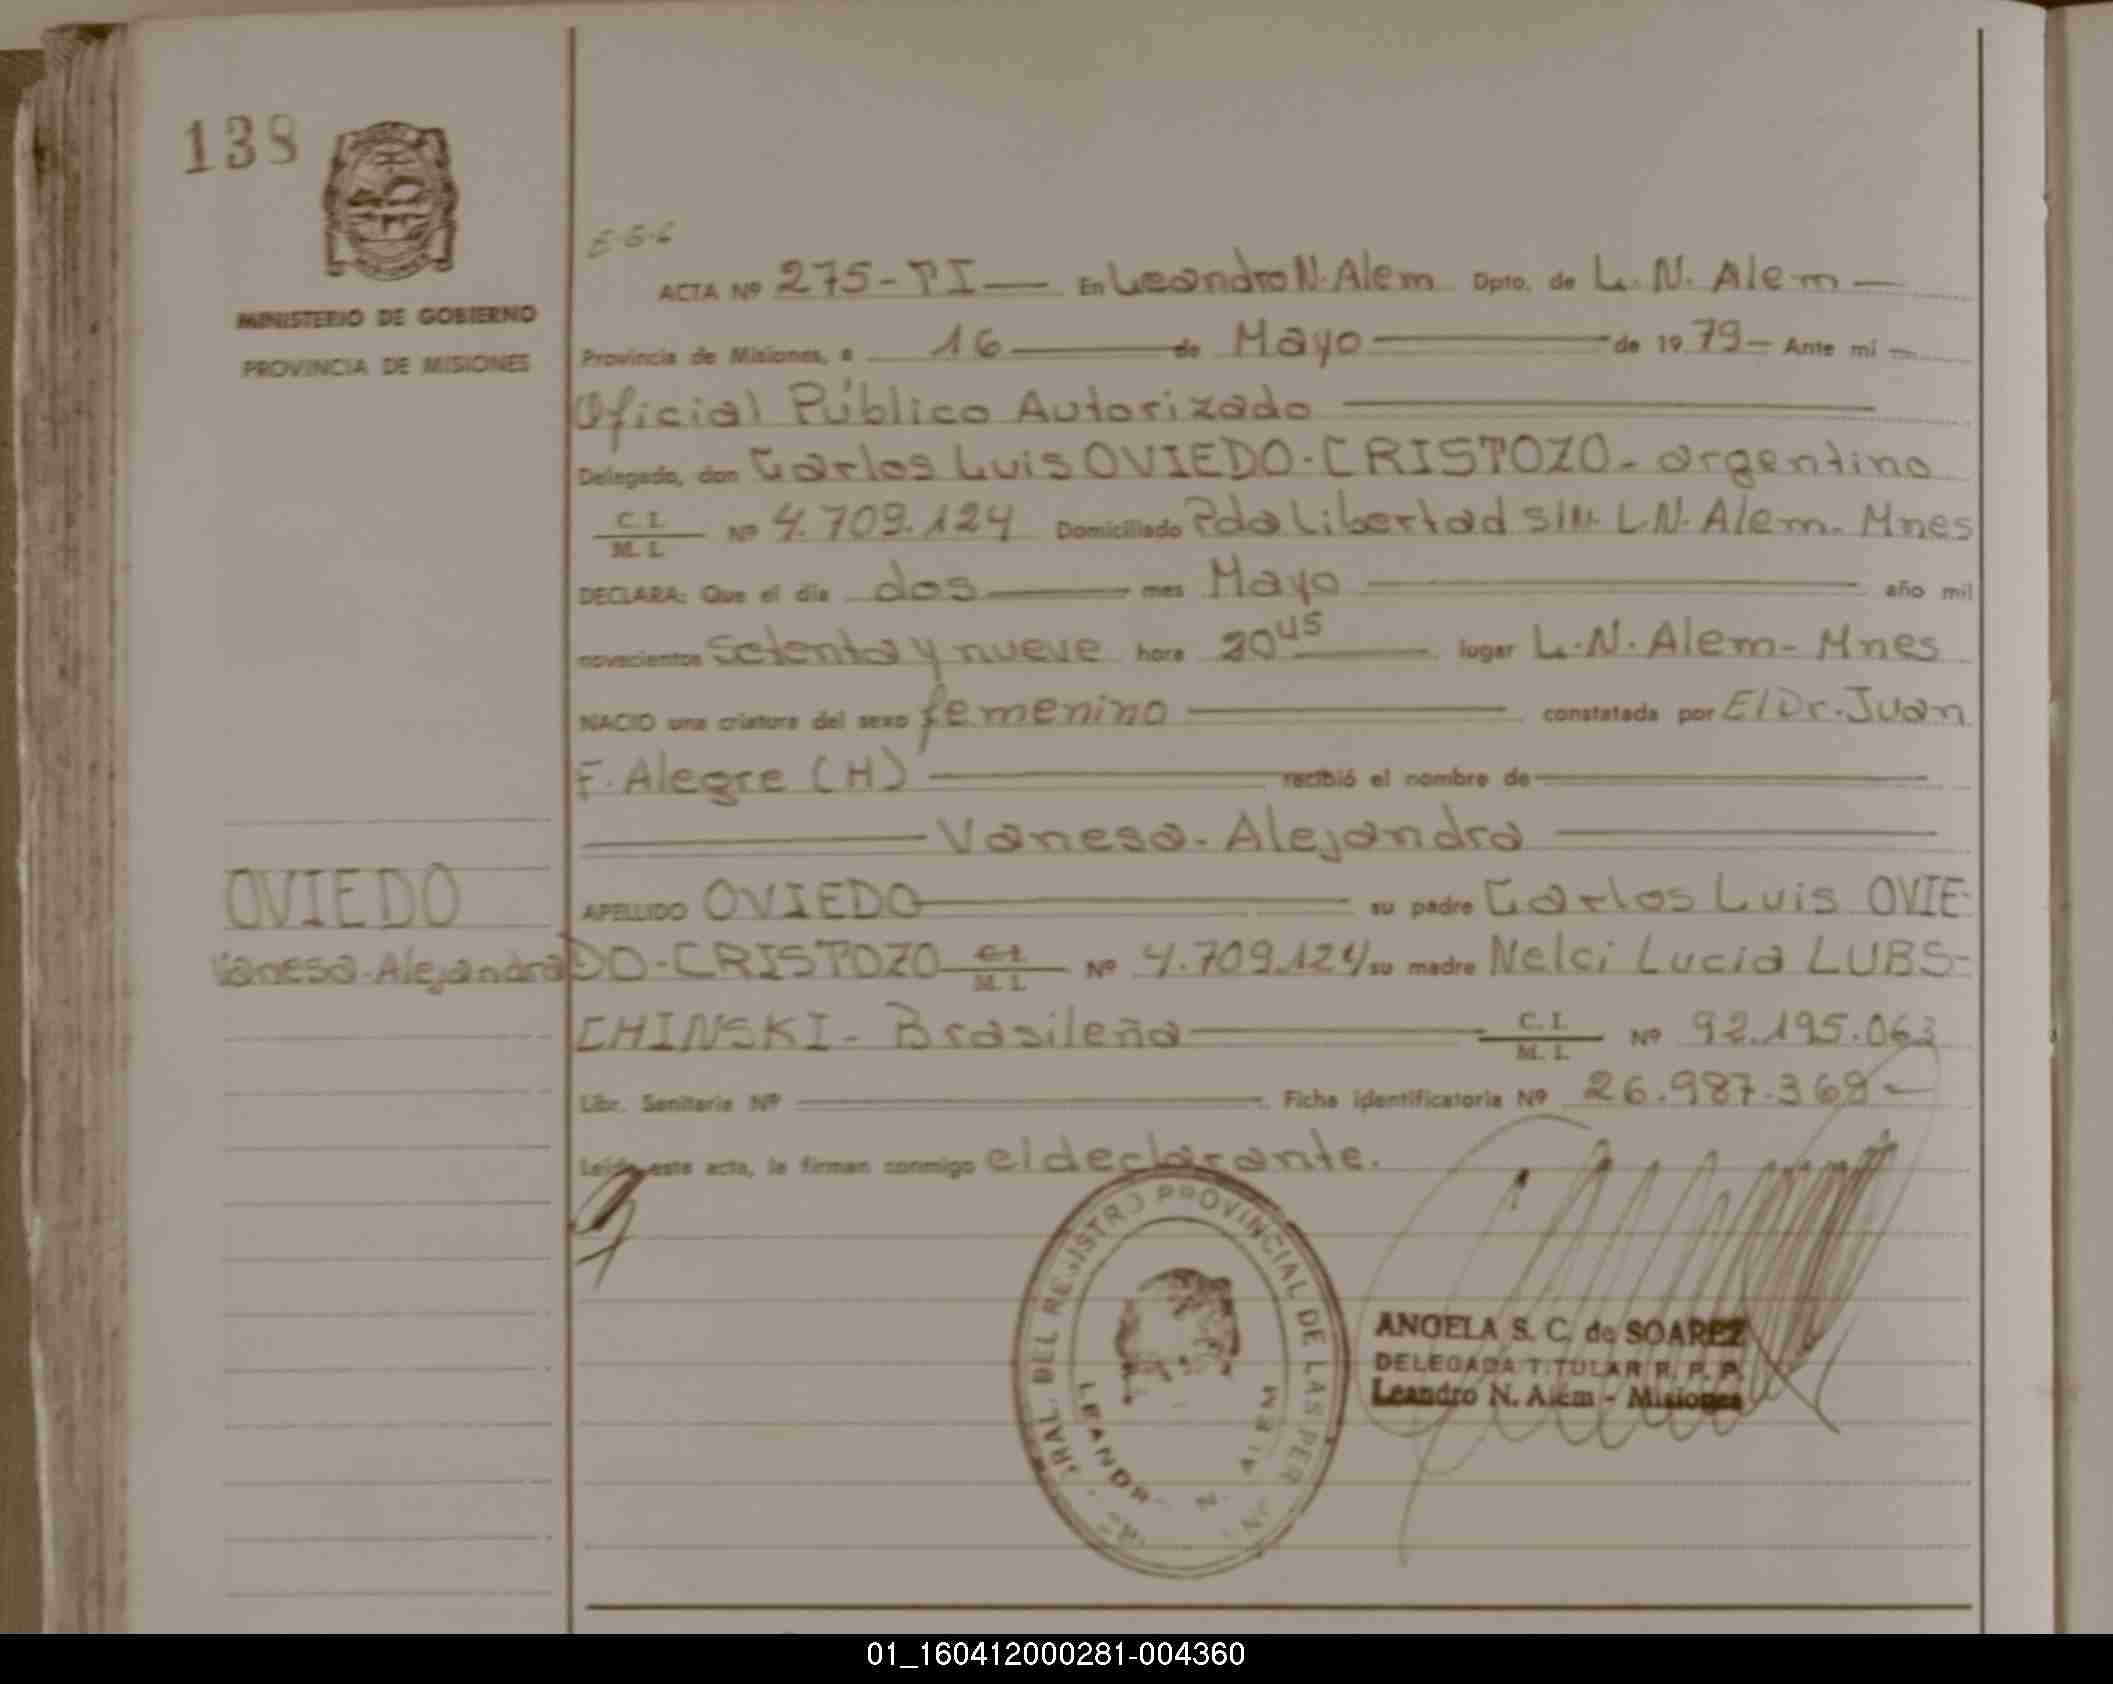 138
MINISTERIO DE GOBIERNO
PROVINCIA DE MISIONES
E-5-6
ACTA Nº 275-PI — En Leandro N. Alem Dpto. de L. N. Alem —
Provincia de Misiones, a 16 — de Mayo — de 1979 — Ante mi —
Oficial Público Autorizado —
Delegado, don Carlos Luis OVIEDO-CRISTOZO - argentino
C. I. / M. I. Nº 4.709.124 Domiciliado Pda Libertad S/N. L.N. Alem - Mnes
DECLARA: Que el día dos — mes Mayo — año mil
novecientos Setenta y nueve hora 20 45 — lugar L.N. Alem - Mnes
NACIO una criatura del sexo femenino — constatada por El Dr. Juan
F. Alegre (H) — recibió el nombre de —
— Vanesa - Alejandra —
OVIEDO
Vanesa - Alejandra
APELLIDO OVIEDO — su padre Carlos Luis OVIE-
DO-CRISTOZO C.I. / M. I. Nº 4.709.124 su madre Nelci Lucia LUBS-
CHINSKI - Brasileña — C. I. / M. I. Nº 92.195.063
Libr. Sanitaria Nº — Ficha identificatoria Nº 26.987.368 —
Leída esta acta, la firman conmigo el declarante.
RAL DEL REGISTRO PROVINCIAL DE LAS PER
LEANDR N. ALEM
ANGELA S. C. de SOAREZ
DELEGADA TITULAR R. P. P.
Leandro N. Alem - Misiones
01_160412000281-004360